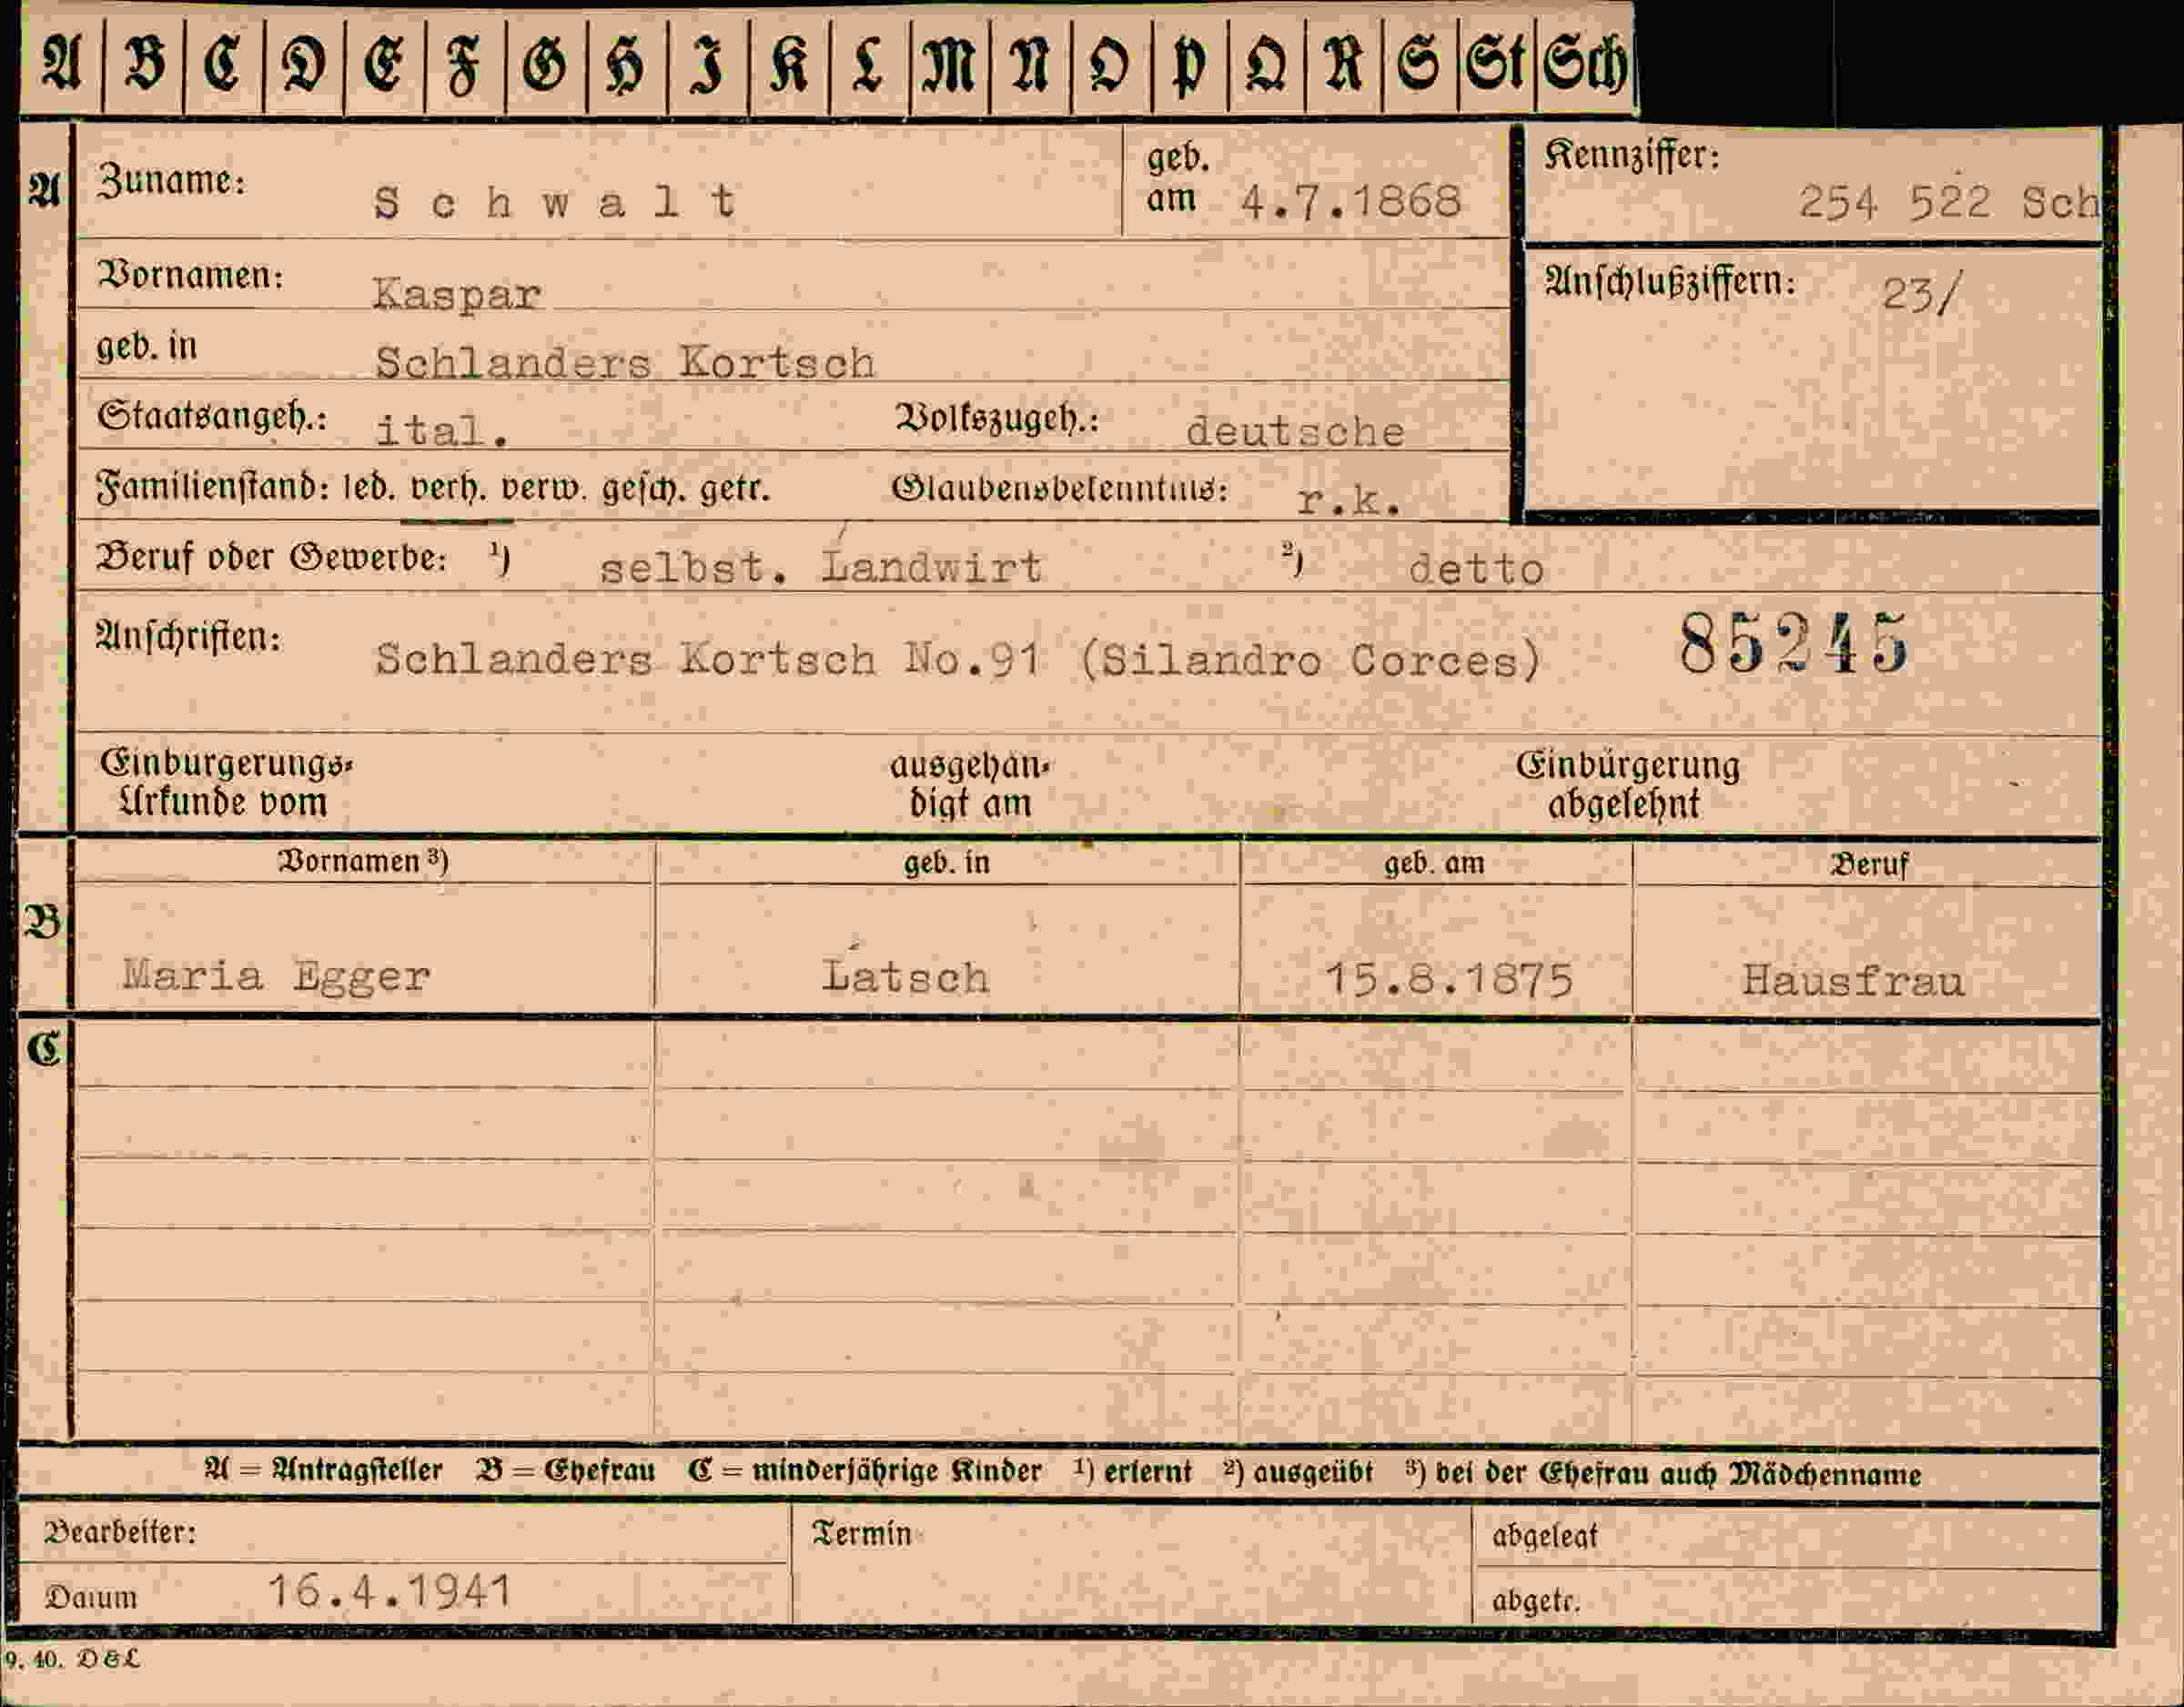 A B C D E F G H I K L M N O P Q R S St Sch
A Zuname: Schwalt geb. am 4.7.1868 Kennziffer: 254 522 Sch
Vornamen: Kaspar Anschlußziffern: 23/
geb. in Schlanders Kortsch
Staatsangeh.: ital. Volkszugeh.: deutsche
Familienstand: led. verh. verw. gesch. getr. Glaubensbekenntnis: r.k.
Beruf oder Gewerbe: ¹) selbst. Landwirt ²) detto
Anschriften: Schlanders Kortsch No.91 (Silandro Corces) 85245
Einbürgerungs- ausgehän- Einbürgerung
Urkunde vom digt am abgelehnt
Vornamen ³) geb. in geb. am Beruf
B
Maria Egger Latsch 15.8.1875 Hausfrau
C
A = Antragsteller B = Ehefrau C = minderjährige Kinder ¹) erlernt ²) ausgeübt ³) bei der Ehefrau auch Mädchenname
Bearbeiter: Termin abgelegt
Datum 16.4.1941 abgetr.
9. 40. D & L